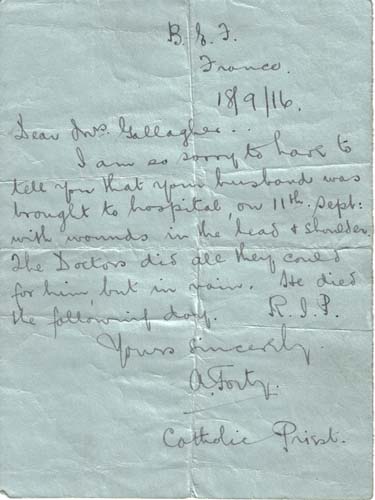 B.E.F.
France.
18/9/16.
Dear Mrs. Gallagher..
I am so sorry to have to
tell you that your husband was
brought to hospital, on 11th. Sept:
with wounds in the head & shoulder
The Doctors did all they could
for him, but in vain. He died
the following day. R.I.P.
Yours sincerely.
A. Forty.
Catholic Priest.